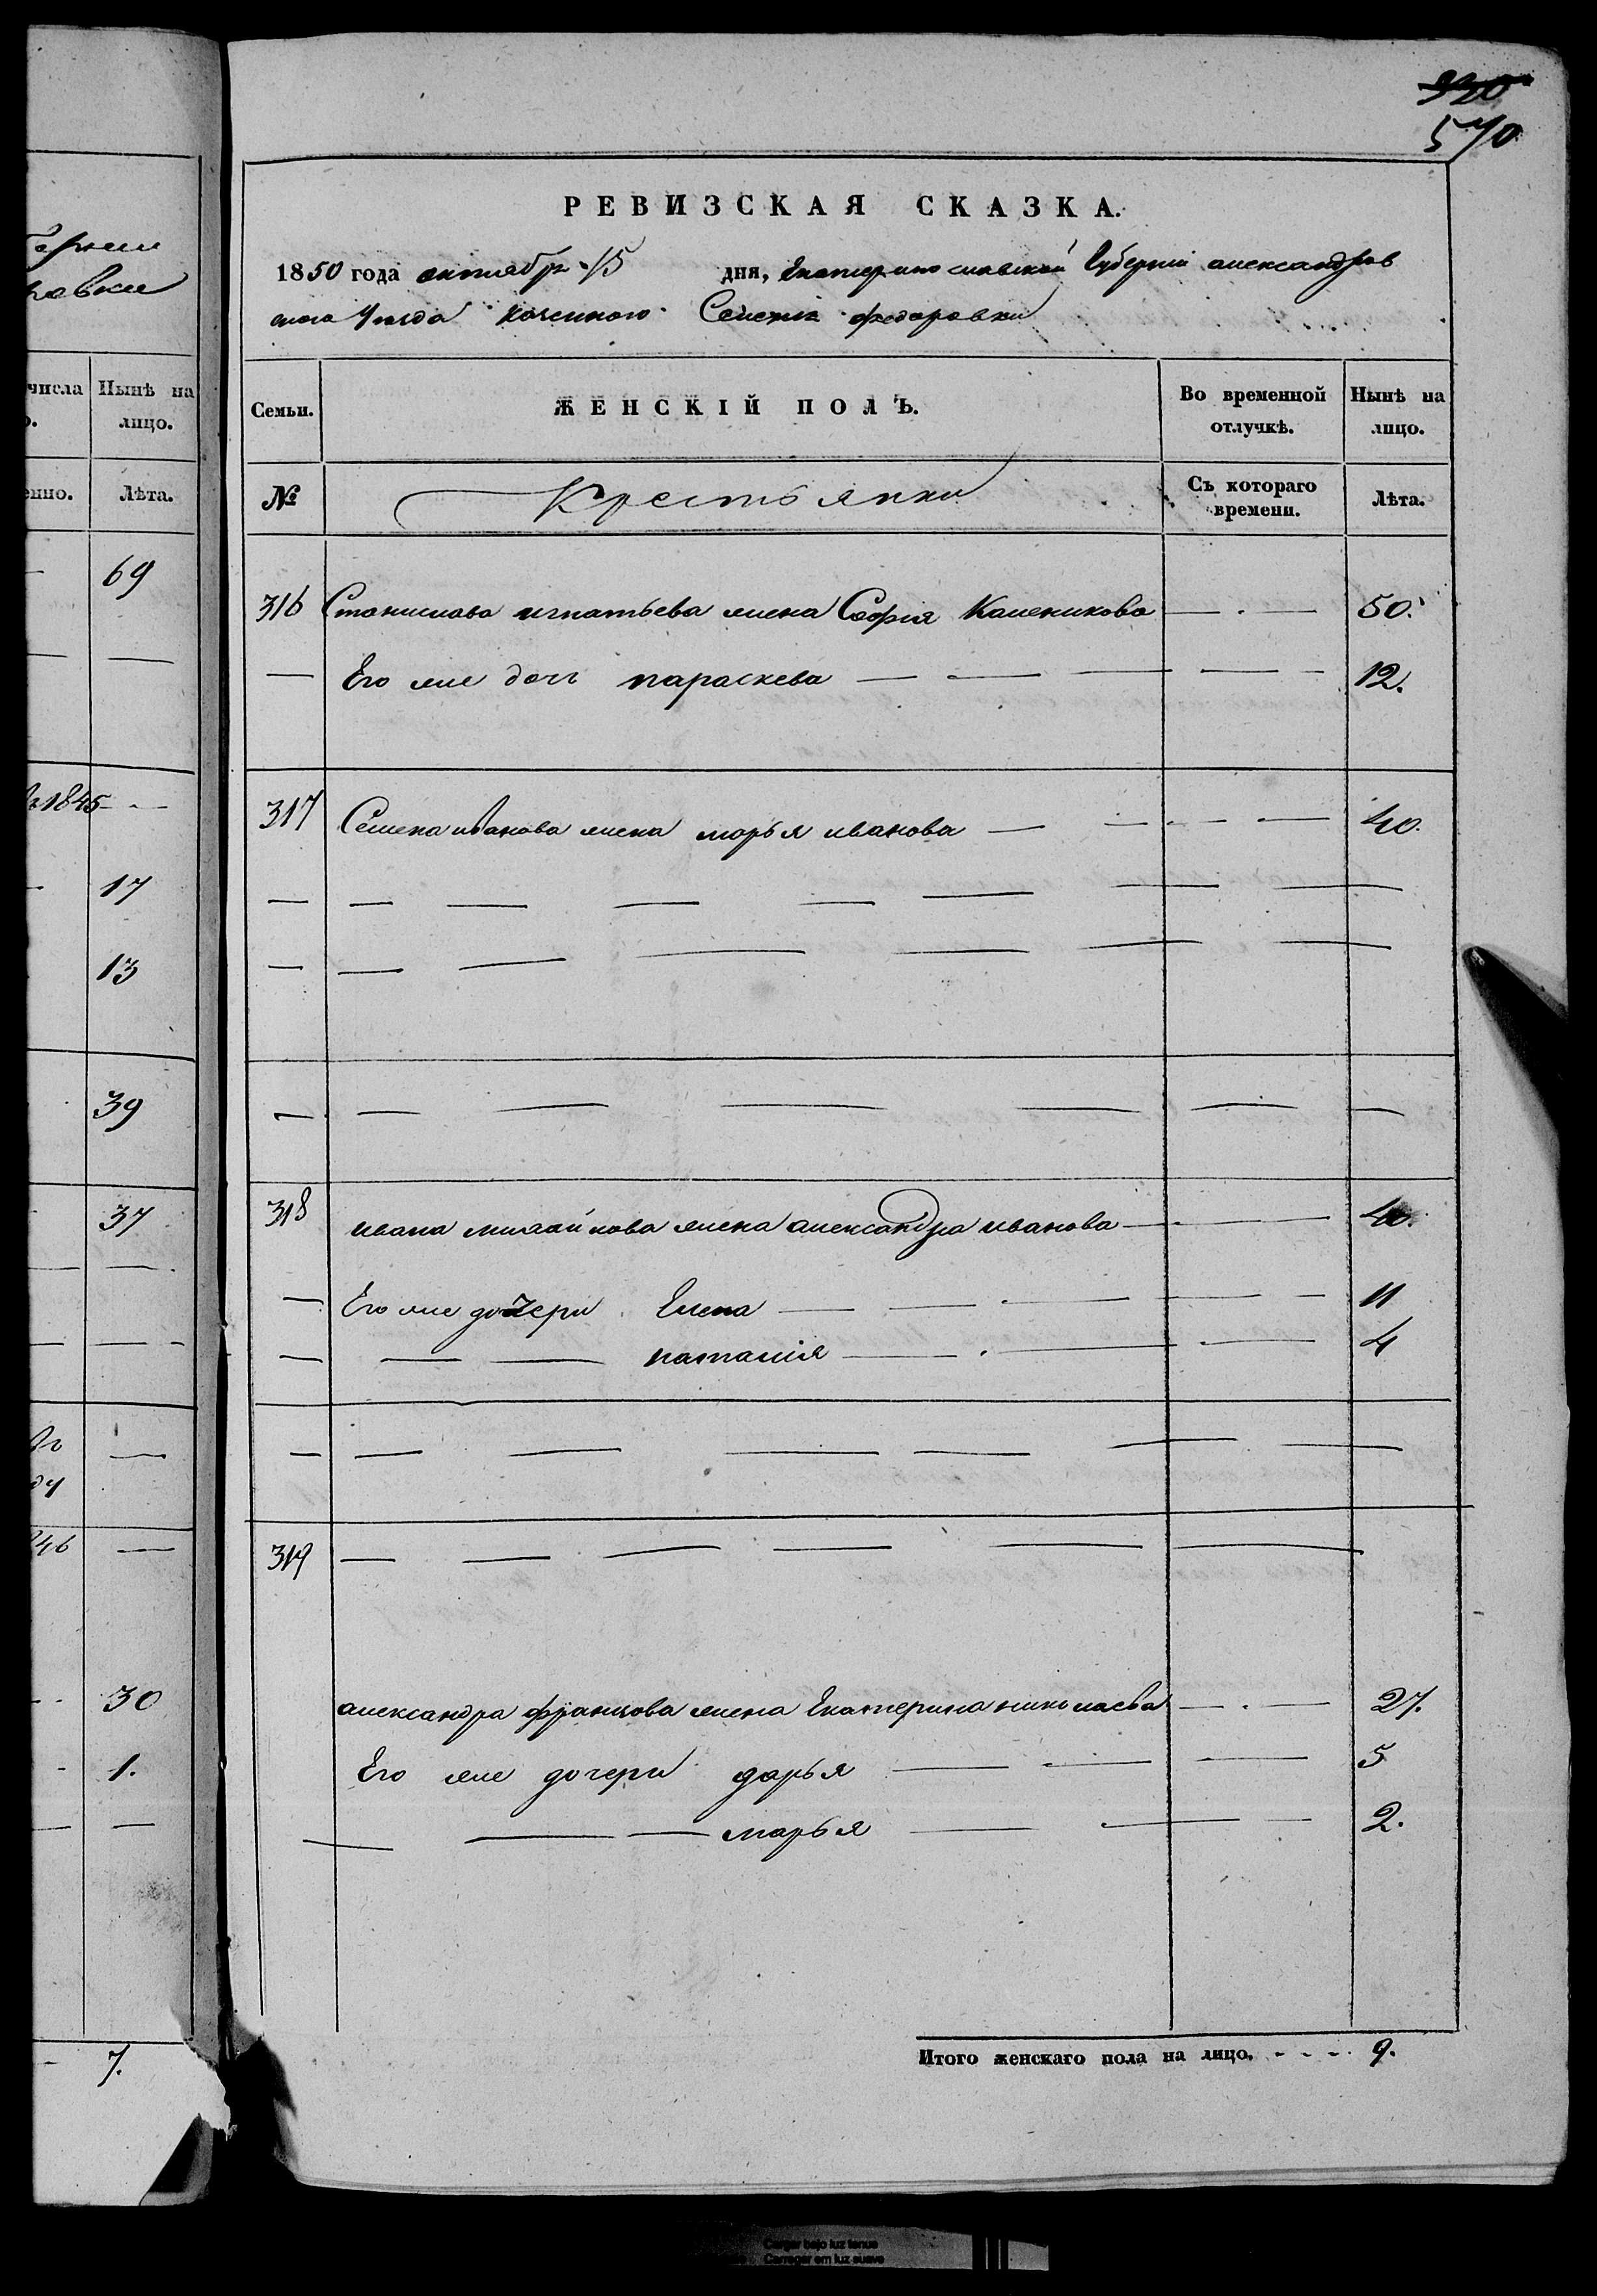 930
570
РЕВИЗСКАЯ СКАЗКА.
1850 года октября 15 дня, Екатеринославской Губерніи александров
скаго Уезда казенного Селенія федоровки
числа Нынѣ на лицо.
Семьи. ЖЕНСКІЙ ПОЛЪ. Во временной отлучкѣ. Нынѣ на лицо.
Лѣта.
№ Крестьянки Съ котораго времени. Лѣта.
69
316 Станислава игнатьева жена Софія Каленикова — . — 50.
— Его же дочь параскева — — — — — 12.
1845 - -
317 Семена иванова жена марья иванова — — - — — 40.
17
— — — — — — — —
13
— — — — — — — —
39
— — — — — — —
318 ивана михайлова жена александра иванова — - — 40.
37
— Его же дочери Елена — — - — — - 11
— — — наталія — . — — 4
— — — — — — —
46 —
319 — — — — — —
30
александра францова жена Екатерина николаева — . — 27.
1.
Его же дочери дарья — — — 5
— — — марья — — — 2.
7.
Итого женскаго пола на лицо. - - - 9.
Cargar bajo luz tenue
Carregar em luz suave